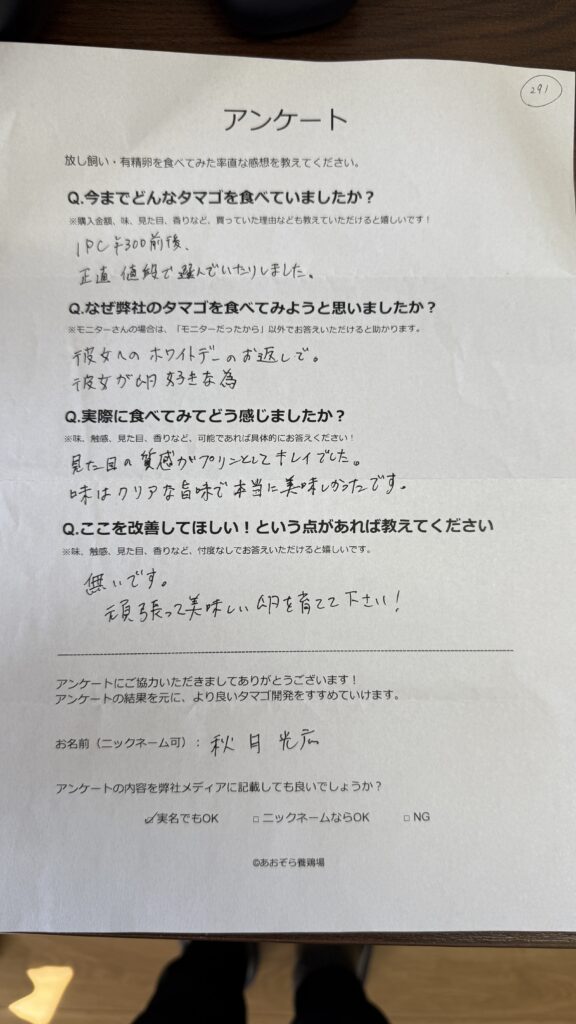 291
アンケート
放し飼い・有精卵を食べてみた率直な感想を教えてください。
Q.今までどんなタマゴを食べていましたか？
※購入金額、味、見た目、香りなど、買っていた理由なども教えていただけると嬉しいです！
1PC ¥300前後、
正直 値段で選んでいたりしました。
Q.なぜ弊社のタマゴを食べてみようと思いましたか？
※モニターさんの場合は、「モニターだったから」以外でお答えいただけると助かります。
彼女へのホワイトデーのお返しで。
彼女が卵好きな為
Q.実際に食べてみてどう感じましたか？
※味、触感、見た目、香りなど、可能であれば具体的にお答えください！
見た目の質感がプリンとしてキレイでした。
味はクリアな旨味で本当に美味しかったです。
Q.ここを改善してほしい！という点があれば教えてください
※味、触感、見た目、香りなど、忖度なしでお答えいただけると嬉しいです。
無いです。
頑張って美味しい卵を育てて下さい！
アンケートにご協力いただきましてありがとうございます！
アンケートの結果を元に、より良いタマゴ開発をすすめていけます。
お名前（ニックネーム可）： 秋月 光広
アンケートの内容を弊社メディアに記載しても良いでしょうか？
☑実名でもOK □ニックネームならOK □NG
©あおぞら養鶏場